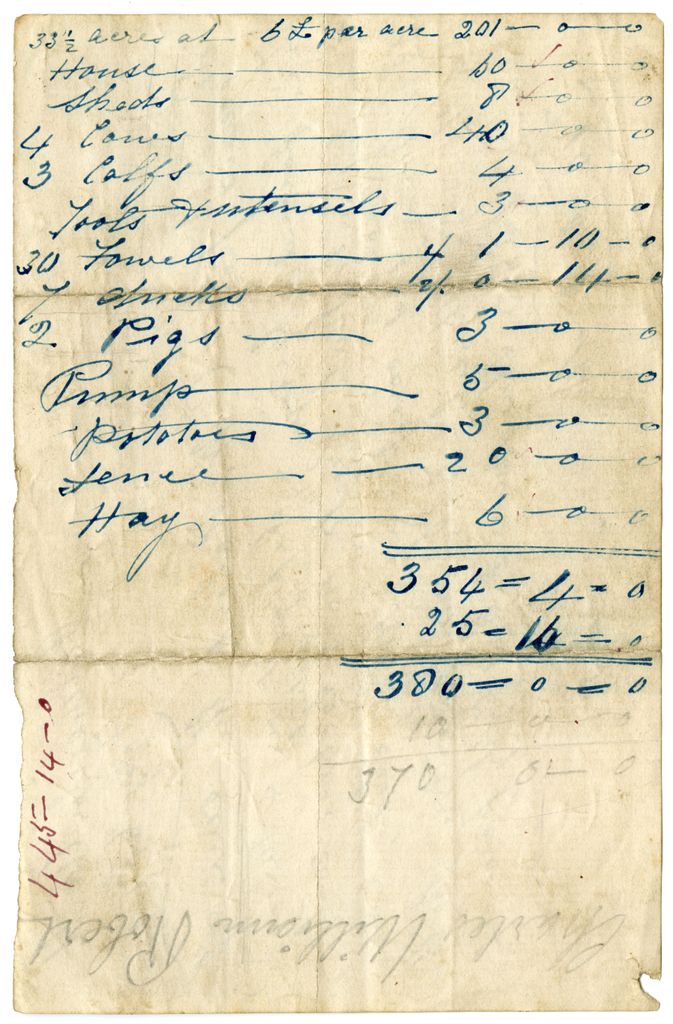 33 1/2 acres at 6 £ per acre 201 — 0 — 0
House — 60 — 0 — 0
Sheds — 8 — 0 — 0
4 Cows — 40 — 0 — 0
3 Calfs — 4 — 0 — 0
Tools & utensels — 3 — 0 — 0
30 Fowels — 1 — 10 — 0
7 ducks — 0 — 14 — 0
2 Pigs — 3 — 0 — 0
Pump — 5 — 0 — 0
Pototoes — 3 — 0 — 0
fence — 20 — 0 — 0
Hay — 6 — 0 — 0
354 = 4 = 0
25 = 16 = 0
380 = 0 = 0
10 — 0 — 0
370 0 — 0
445 = 14 — 0
Charles William Robert